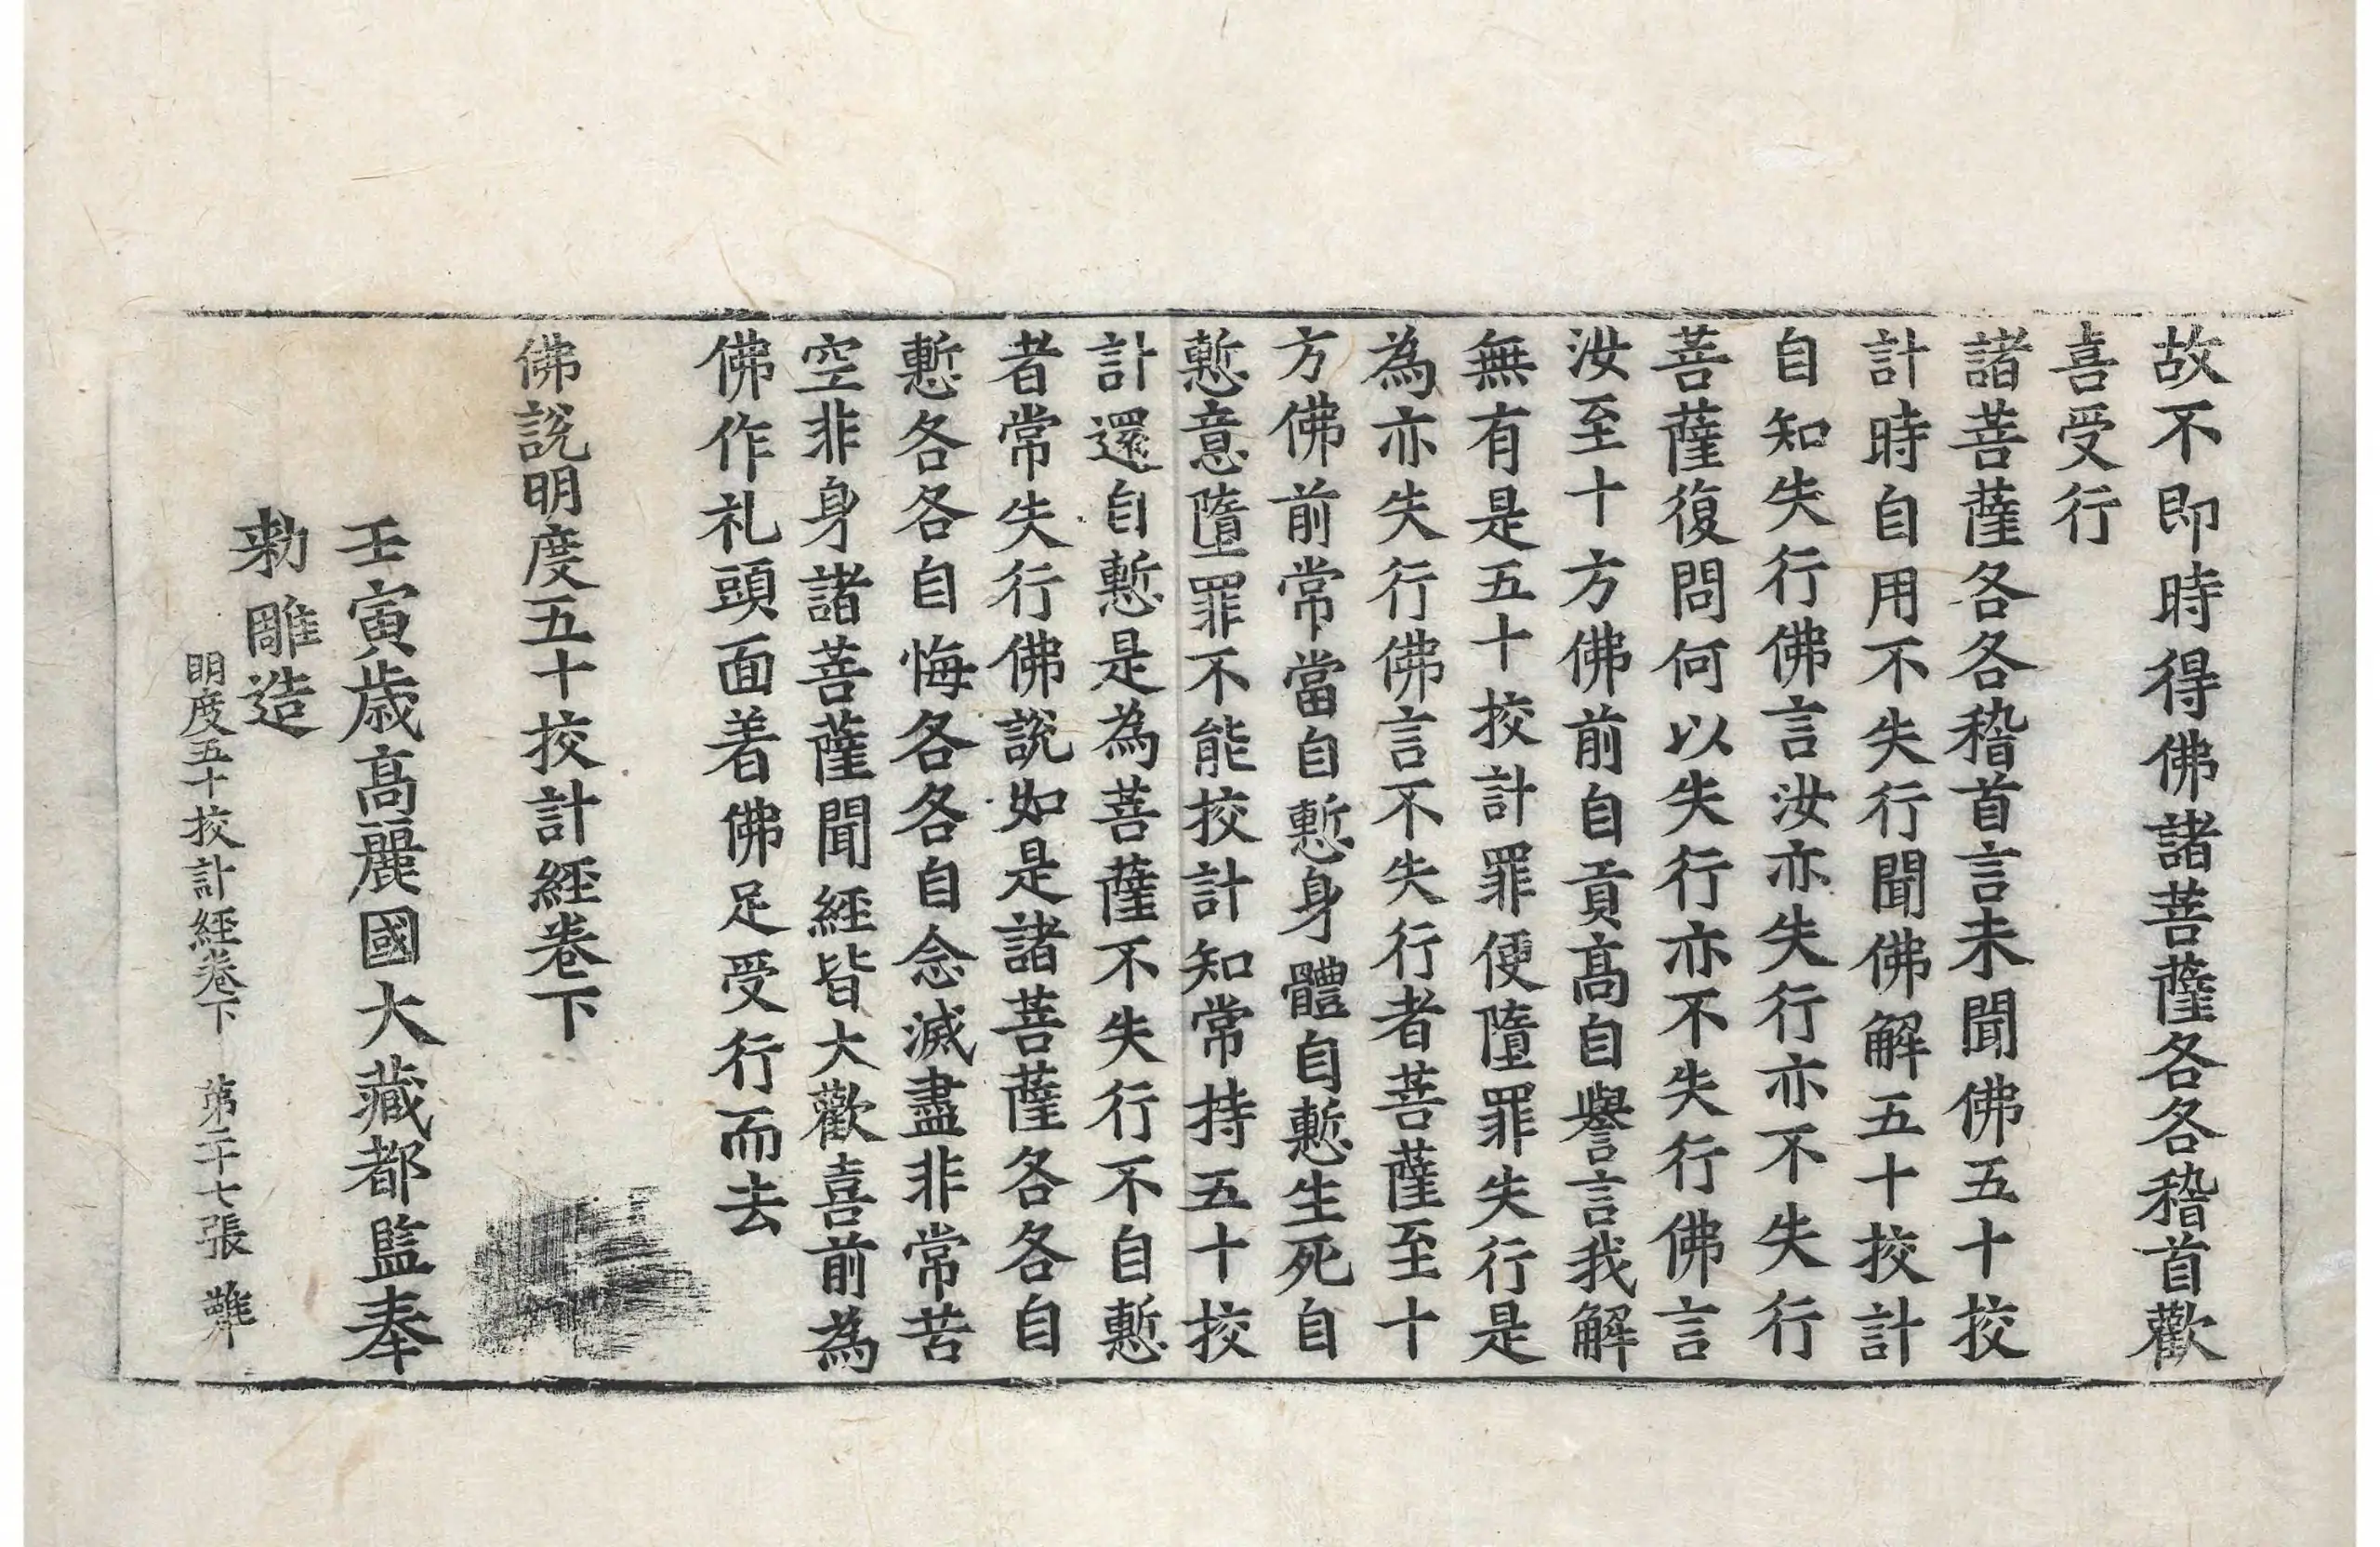 故不即時得佛諸菩薩各各稽首歡
喜受行
諸菩薩各各稽首言未聞佛五十挍
計時自用不失行聞佛解五十挍計
自知失行佛言汝亦失行亦不失行
菩薩復問何以失行亦不失行佛言
汝至十方佛前自貢髙自譽言我解
無有是五十挍計罪便墮罪失行是
為亦失行佛言不失行者菩薩至十
方佛前常當自慙身體自慙生死自
慙意墮罪不能挍計知常持五十挍
計還自慙是為菩薩不失行不自慙
者常失行佛說如是諸菩薩各各自
慙各各自悔各各自念滅盡非常苦
空非身諸菩薩聞經皆大歡喜前為
佛作礼頭面着佛足受行而去
佛說明度五十挍計經卷下
壬寅歲高麗國大藏都監奉
勑雕造
明度五十挍計經卷下 第二十七張 難